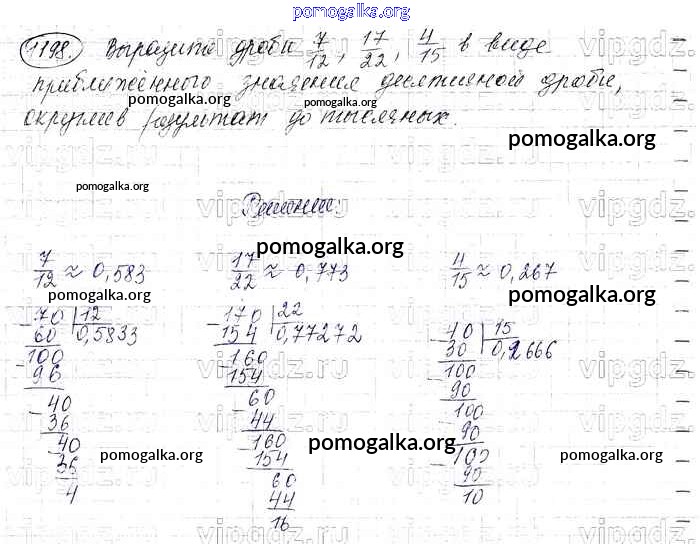 pomogalka.org
1198. Выразите дроби 7/12, 17/22, 4/15 в виде
приближённого значения десятичной дроби,
округлив результат до тысячных.
pomogalka.org
pomogalka.org
Решение:
pomogalka.org
7/12 ≈ 0,583 17/22 ≈ 0,773 4/15 ≈ 0,267
pomogalka.org pomogalka.org
70 | 12 170 | 22 40 | 15
60 0,5833 154 0,77272 30 0,2666
100 160 100
96 154 90
40 60 100
36 44 90
40 160 100
36 154 90
4 60 10
44
16
pomogalka.org pomogalka.org pomogalka.org
vipgdz.ru